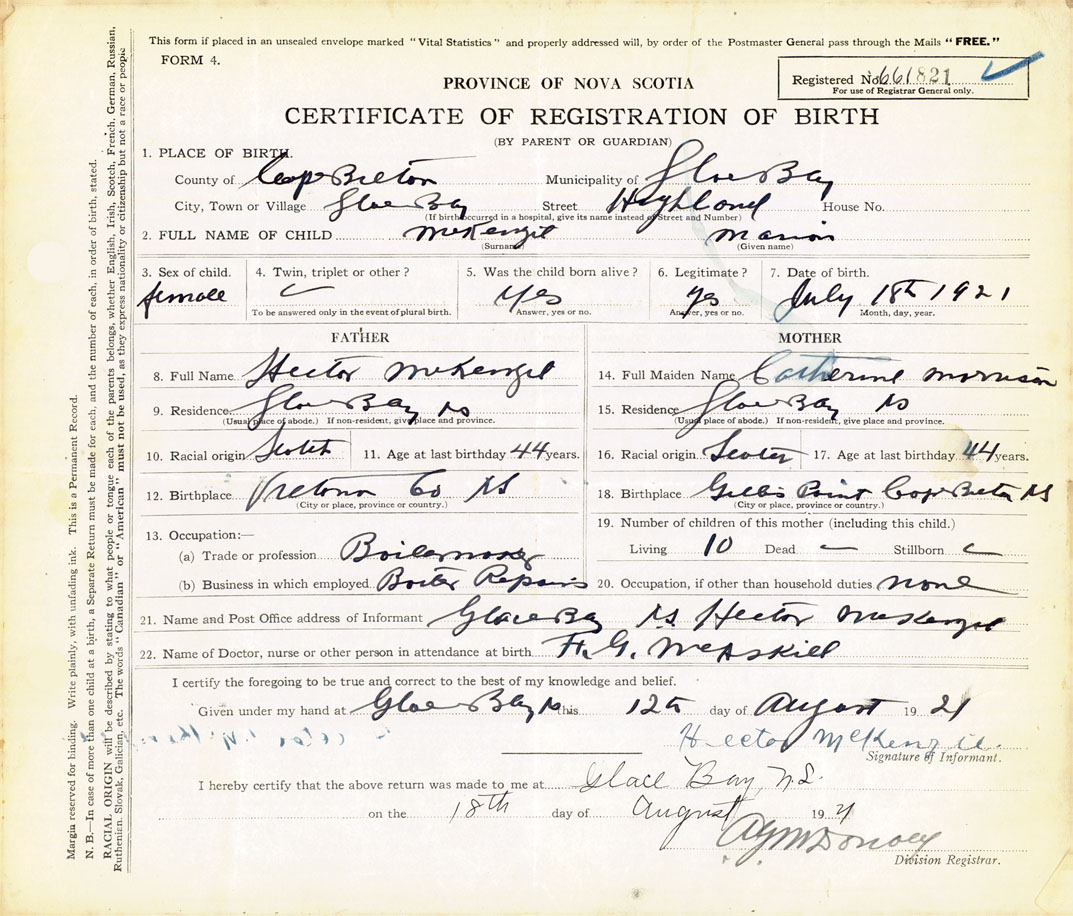 This form if placed in an unsealed envelope marked "Vital Statistics" and properly addressed will, by order of the Postmaster General pass through the Mails "FREE."
FORM 4.
Registered No. 661821
For use of Registrar General only.
PROVINCE OF NOVA SCOTIA
CERTIFICATE OF REGISTRATION OF BIRTH
(BY PARENT OR GUARDIAN)
1. PLACE OF BIRTH.
County of Cape Breton Municipality of Glace Bay
City, Town or Village Glace Bay Street Highland House No.
(If birth occurred in a hospital, give its name instead of Street and Number)
2. FULL NAME OF CHILD McKenzie Marion
(Surname) (Given name)
3. Sex of child. 4. Twin, triplet or other? 5. Was the child born alive? 6. Legitimate? 7. Date of birth.
female Yes yes July 18th 1921
To be answered only in the event of plural birth. Answer, yes or no. Answer, yes or no. Month, day, year.
FATHER MOTHER
8. Full Name Hector McKenzie 14. Full Maiden Name Catherine Morrison
9. Residence Glace Bay NS 15. Residence Glace Bay NS
(Usual place of abode.) If non-resident, give place and province. (Usual place of abode.) If non-resident, give place and province.
10. Racial origin Scotch 11. Age at last birthday 44 years. 16. Racial origin Scotch 17. Age at last birthday 44 years.
12. Birthplace Victoria Co NS 18. Birthplace Gillis Point Cape Breton NS
(City or place, province or country.) (City or place, province or country.)
13. Occupation:— 19. Number of children of this mother (including this child.)
(a) Trade or profession Boilermaker Living 10 Dead — Stillborn
(b) Business in which employed Boiler Repairs 20. Occupation, if other than household duties none
21. Name and Post Office address of Informant Glace Bay NS Hector McKenzie
22. Name of Doctor, nurse or other person in attendance at birth McAskill
I certify the foregoing to be true and correct to the best of my knowledge and belief.
Given under my hand at Glace Bay NS this 12th day of August 1921
Hector McKenzie
Signature of Informant.
I hereby certify that the above return was made to me at Glace Bay, N.S.
on the 18th day of August 1921
Division Registrar.
Margin reserved for binding. Write plainly, with unfading ink. This is a Permanent Record.
N. B.—In case of more than one child at a birth, a Separate Return must be made for each, and the number of each, in order of birth, stated.
RACIAL ORIGIN will be described by stating to what people or tongue each of the parents belongs, whether English, Irish, Scotch, French, German, Russian,
Ruthenian, Slovak, Galician, etc. The words "Canadian" or "American" must not be used, as they express nationality or citizenship but not a race or people